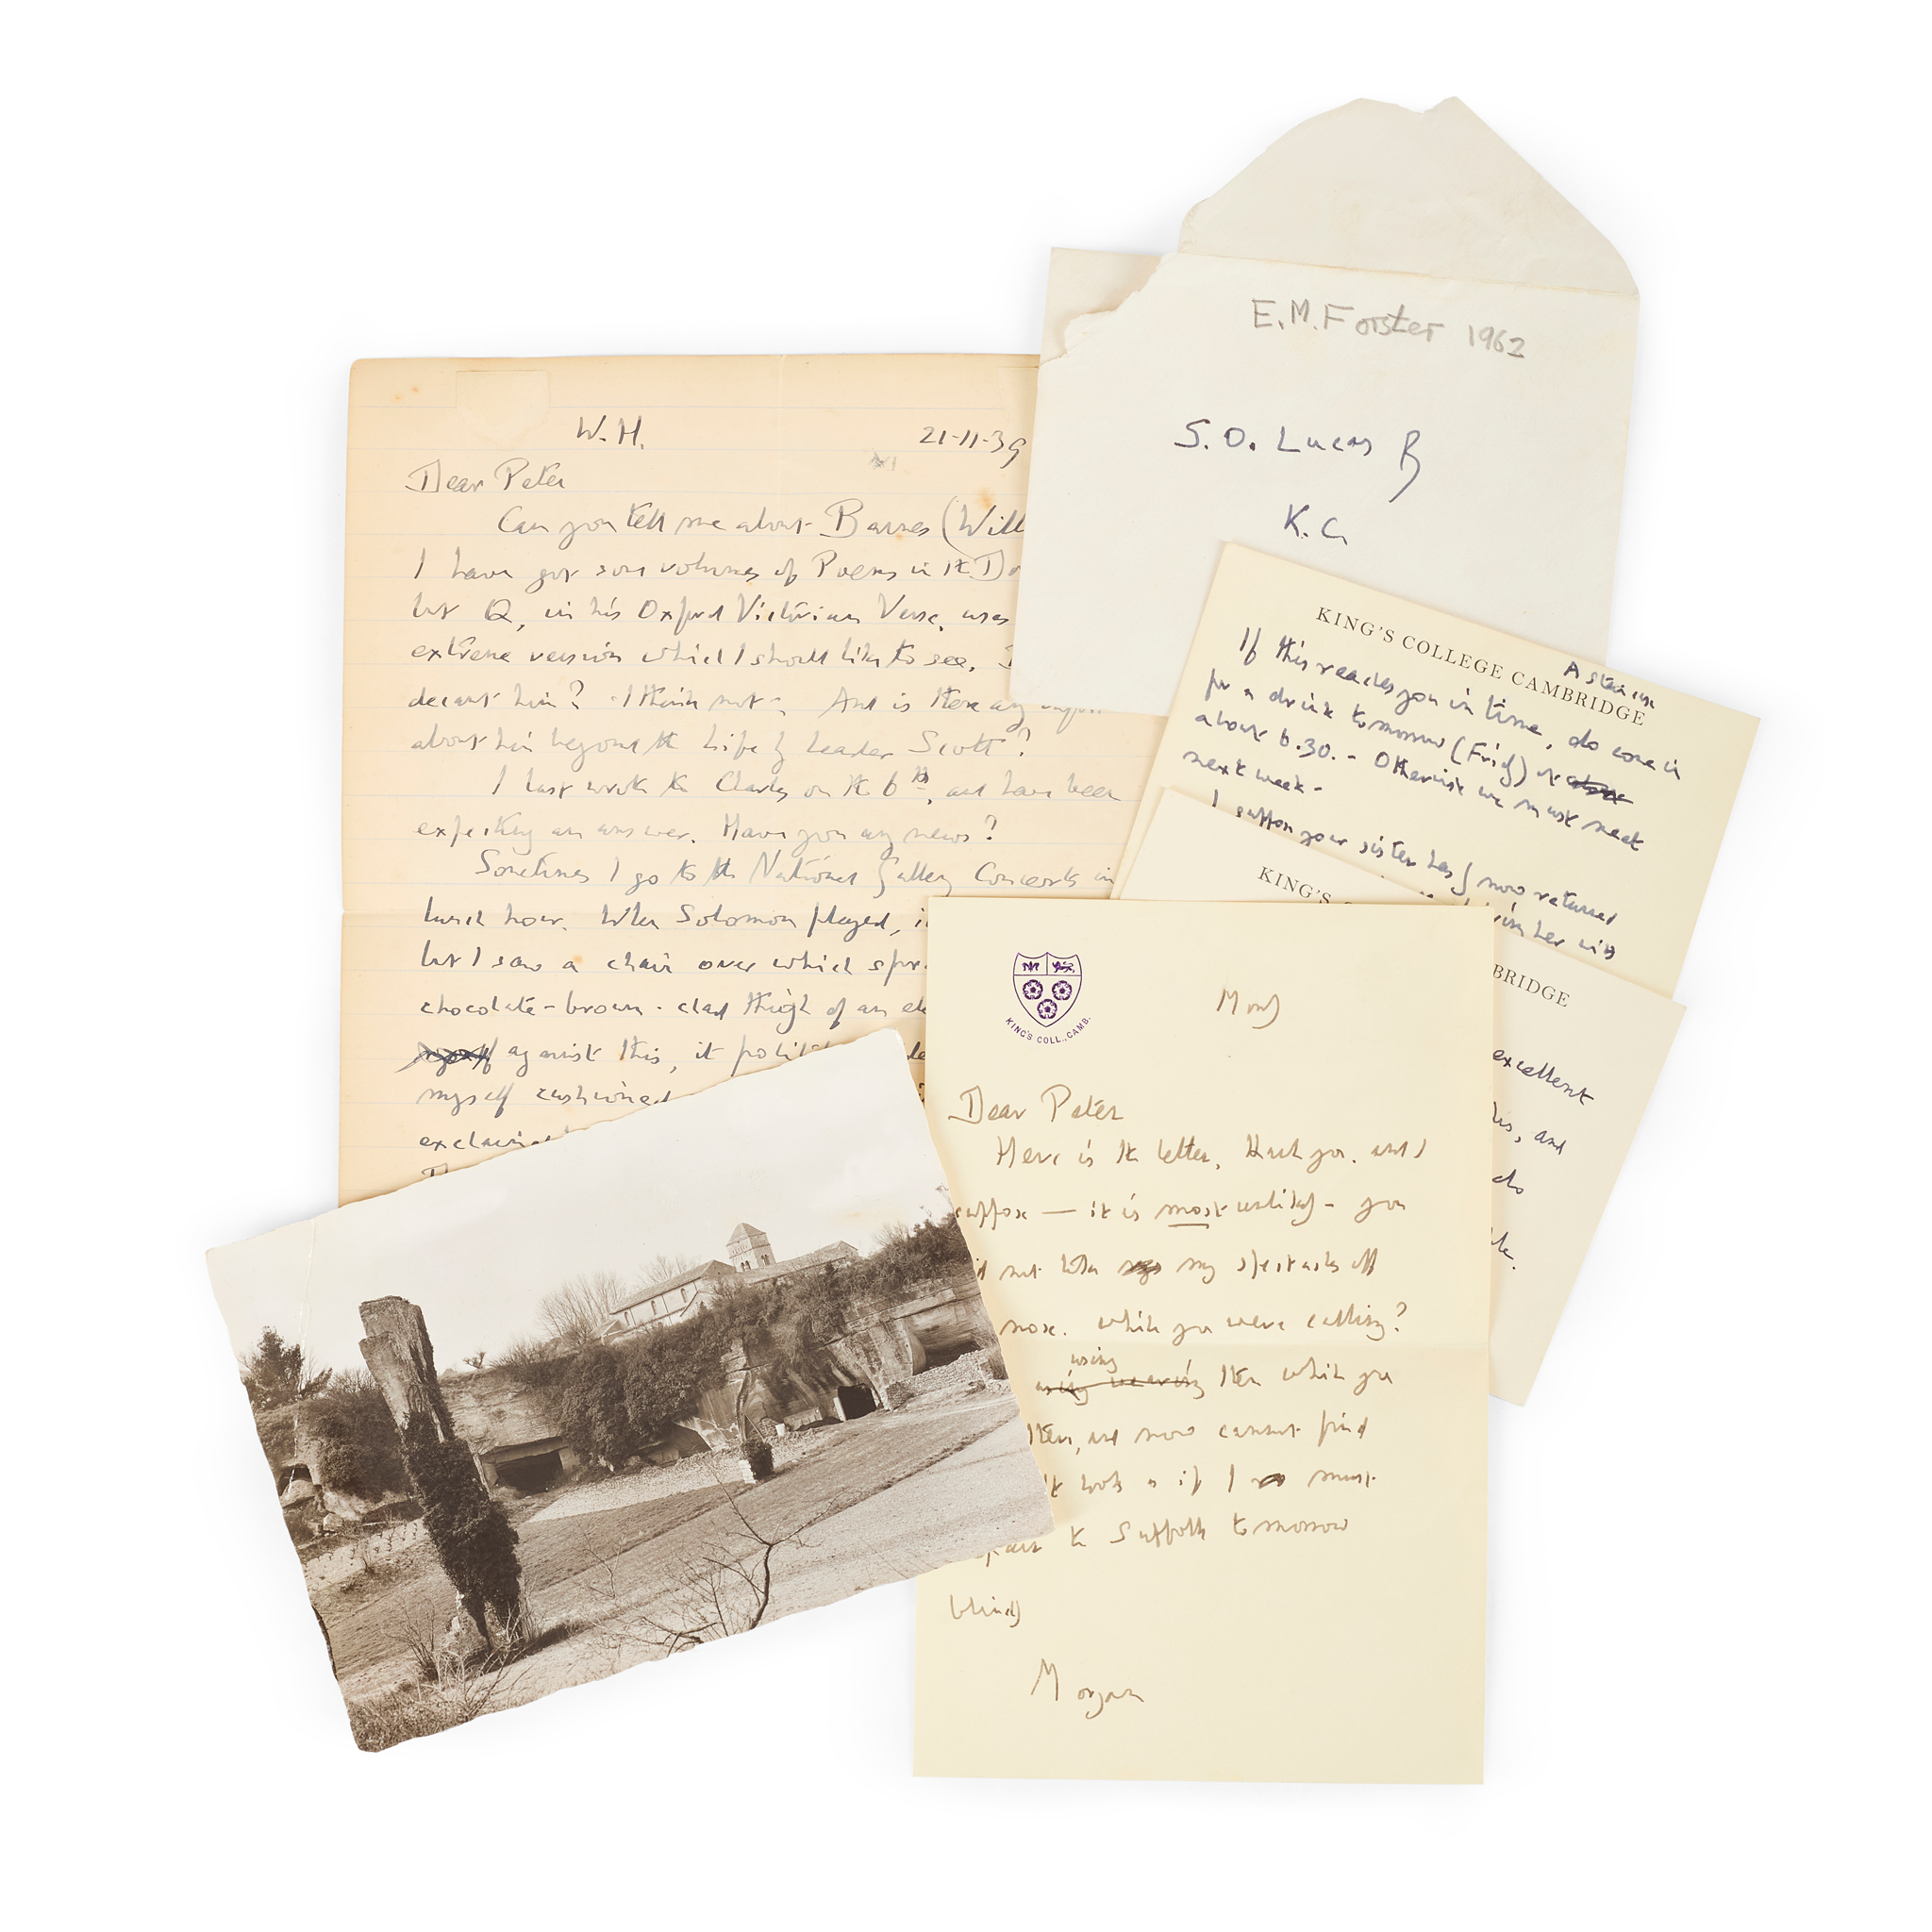 W. H. 21-11-39
Dear Peter
Can you tell me about Barnes (Will
I have got some volumes of Poems in the Do
but Q, in his Oxford Victorian Verse, uses
extreme version which I should like to see.
decent him? - I think not -. And is there any
about him beyond the Life by Leader Scott?
I last wrote to Charles on the 6th, and have been
expecting an answer. Have you any news?
Sometimes I go to the National Gallery Concerts in
lunch hour. When Solomon played, i
but I saw a chair over which spr
chocolate-brown-clad thigh of an el
against this, it
myself cushioned
exclaimed
E.M. Forster 1962
S. O. Lucas
K. C.
KING'S COLLEGE CAMBRIDGE
A stair
If this reaches you in time, do come in
for a drink tomorrow (Fridy) at
about 6.30. - Otherwise we must meet
next week -
I suppose your sister has now returned
her
KING'S
BRIDGE
excellent
his, and
do
KING'S COLL., CAMB.
Mondy
Dear Peter
Here is the letter, thank you. and I
suppose — it is most unlikely - you
not take my spectacles off
nose. while you were calling?
using
using wearing them while you
them, and now cannot find
looks as if I must
to Suffolk tomorrow
blindly
Morgan